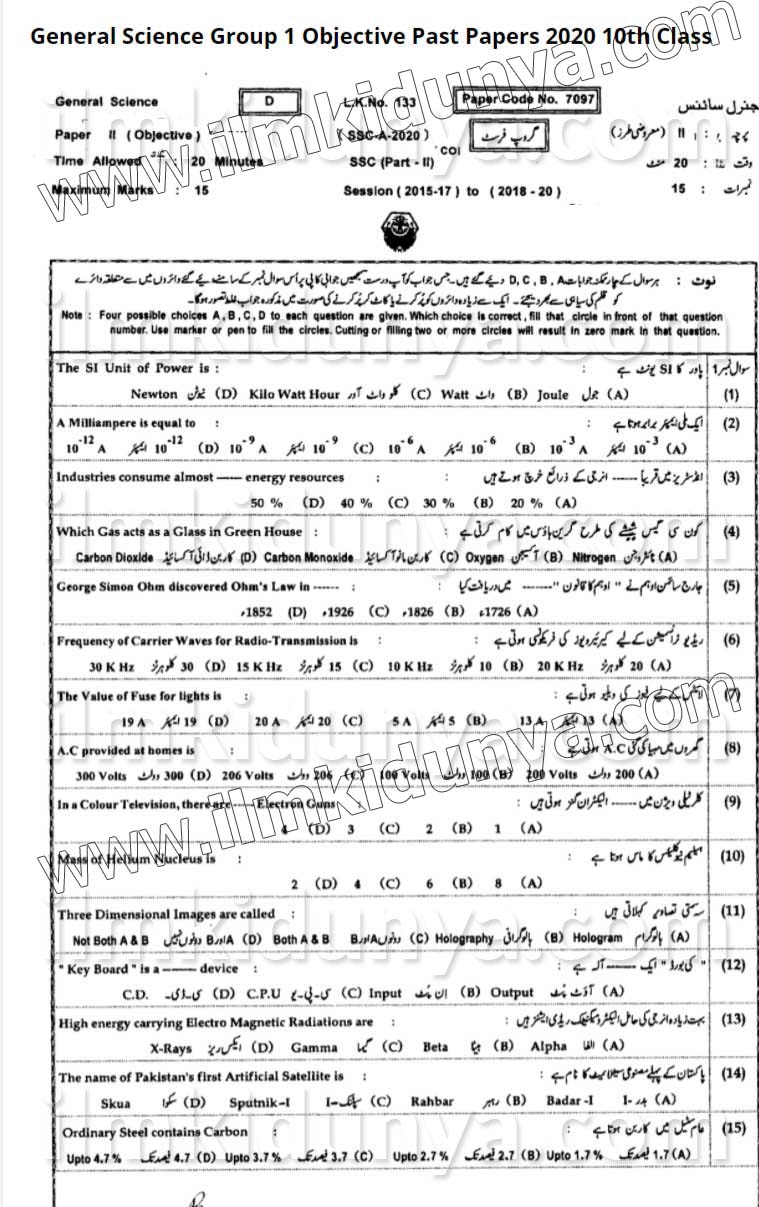 General Science Group 1 Objective Past Papers 2020 10th Class
General Science D L.K.No. 133 Paper Code No. 7097 جنرل سائنس
Paper II (Objective) (SSC-A-2020) گروپ فرسٹ پرچہ : II (معروضی طرز)
Time Allowed : 20 Minutes SSC (Part - II) وقت : 20 منٹ
Maximum Marks : 15 Session (2015-17) to (2018 - 20) نمبرات : 15
نوٹ : ہر سوال کے چار ممکنہ جوابات D, C, B, A دیے گئے ہیں۔ جس جواب کو آپ درست سمجھیں جوابی کاپی پر اُس سوال نمبر کے سامنے دیے گئے دائروں میں سے متعلقہ دائرے
کو قلم کی سیاہی سے بھر دیجئے۔ ایک سے زیادہ دائروں کو پُر کرنے یا کاٹ کر پُر کرنے کی صورت میں مذکورہ جواب غلط تصور ہوگا۔
Note : Four possible choices A, B, C, D to each question are given. Which choice is correct, fill that circle in front of that question
number. Use marker or pen to fill the circles. Cutting or filling two or more circles will result in zero mark in that question.
The SI Unit of Power is : پاور کا SI یونٹ ہے : سوال نمبر 1
Newton نیوٹن (D) Kilo Watt Hour کلو واٹ آور (C) Watt واٹ (B) Joule جول (A) (1)
A Milliampere is equal to : ایک ملی ایمپیئر برابر ہوتا ہے : (2)
10⁻¹² A ایمپیئر 10⁻¹² (D) 10⁻⁹ A ایمپیئر 10⁻⁹ (C) 10⁻⁶ A ایمپیئر 10⁻⁶ (B) 10⁻³ A ایمپیئر 10⁻³ (A)
Industries consume almost ------ energy resources : انڈسٹریز میں تقریباً ------ انرجی کے ذرائع خرچ ہوتے ہیں : (3)
50 % (D) 40 % (C) 30 % (B) 20 % (A)
Which Gas acts as a Glass in Green House : کون سی گیس شیشے کی طرح گرین ہاؤس میں کام کرتی ہے : (4)
Carbon Dioxide کاربن ڈائی آکسائیڈ (D) Carbon Monoxide کاربن مانو آکسائیڈ (C) Oxygen آکسیجن (B) Nitrogen نائٹروجن (A)
George Simon Ohm discovered Ohm's Law in ------ : جارج سائمن اوہم نے " اوہم کا قانون " ------ میں دریافت کیا : (5)
1852ء (D) 1926ء (C) 1826ء (B) 1726ء (A)
Frequency of Carrier Waves for Radio-Transmission is : ریڈیو ٹرانسمیشن کے لیے کیریئر ویوز کی فریکوئنسی ہوتی ہے : (6)
30 K Hz کلو ہرٹز 30 (D) 15 K Hz کلو ہرٹز 15 (C) 10 K Hz کلو ہرٹز 10 (B) 20 K Hz کلو ہرٹز 20 (A)
The Value of Fuse for lights is : لائٹس کے لیے فیوز کی ویلیو ہوتی ہے : (7)
19 A ایمپیئر 19 (D) 20 A ایمپیئر 20 (C) 5 A ایمپیئر 5 (B) 13 A ایمپیئر 13 (A)
A.C provided at homes is : گھروں میں مہیا کی گئی A.C ہوتی ہے : (8)
300 Volts وولٹ 300 (D) 206 Volts وولٹ 206 (C) 100 Volts وولٹ 100 (B) 200 Volts وولٹ 200 (A)
In a Colour Television, there are ------ Electron Guns : کلر ٹیلی ویژن میں ------ الیکٹران گنز ہوتی ہیں : (9)
4 (D) 3 (C) 2 (B) 1 (A)
Mass of Helium Nucleus is : ہیلیم نیوکلیئس کا ماس ہوتا ہے : (10)
2 (D) 4 (C) 6 (B) 8 (A)
Three Dimensional Images are called : سہ سمتی تصاویر کہلاتی ہیں : (11)
Not Both A & B A اور B دونوں نہیں (D) Both A & B A اور B دونوں (C) Holography ہالوگرافی (B) Hologram ہالوگرام (A)
" Key Board " is a ------ device : " کی بورڈ " ایک ------ آلہ ہے : (12)
C.D. سی۔ڈی۔ (D) C.P.U سی۔پی۔یو (C) Input ان پُٹ (B) Output آؤٹ پُٹ (A)
High energy carrying Electro Magnetic Radiations are : بہت زیادہ انرجی کی حامل الیکٹرو میگنیٹک ریڈی ایشنز ہیں : (13)
X-Rays ایکس ریز (D) Gamma گیما (C) Beta بیٹا (B) Alpha الفا (A)
The name of Pakistan's first Artificial Satellite is : پاکستان کے پہلے مصنوعی سیٹلائیٹ کا نام ہے : (14)
Skua سکوا (D) Sputnik-I سپتنک-I (C) Rahbar رہبر (B) Badar -I بدر-I (A)
Ordinary Steel contains Carbon : عام سٹیل میں کاربن ہوتا ہے : (15)
Upto 4.7 % 4.7 فیصد تک (D) Upto 3.7 % 3.7 فیصد تک (C) Upto 2.7 % 2.7 فیصد تک (B) Upto 1.7 % 1.7 فیصد تک (A)
www.ilmkidunya.com
www.ilmkidunya.com